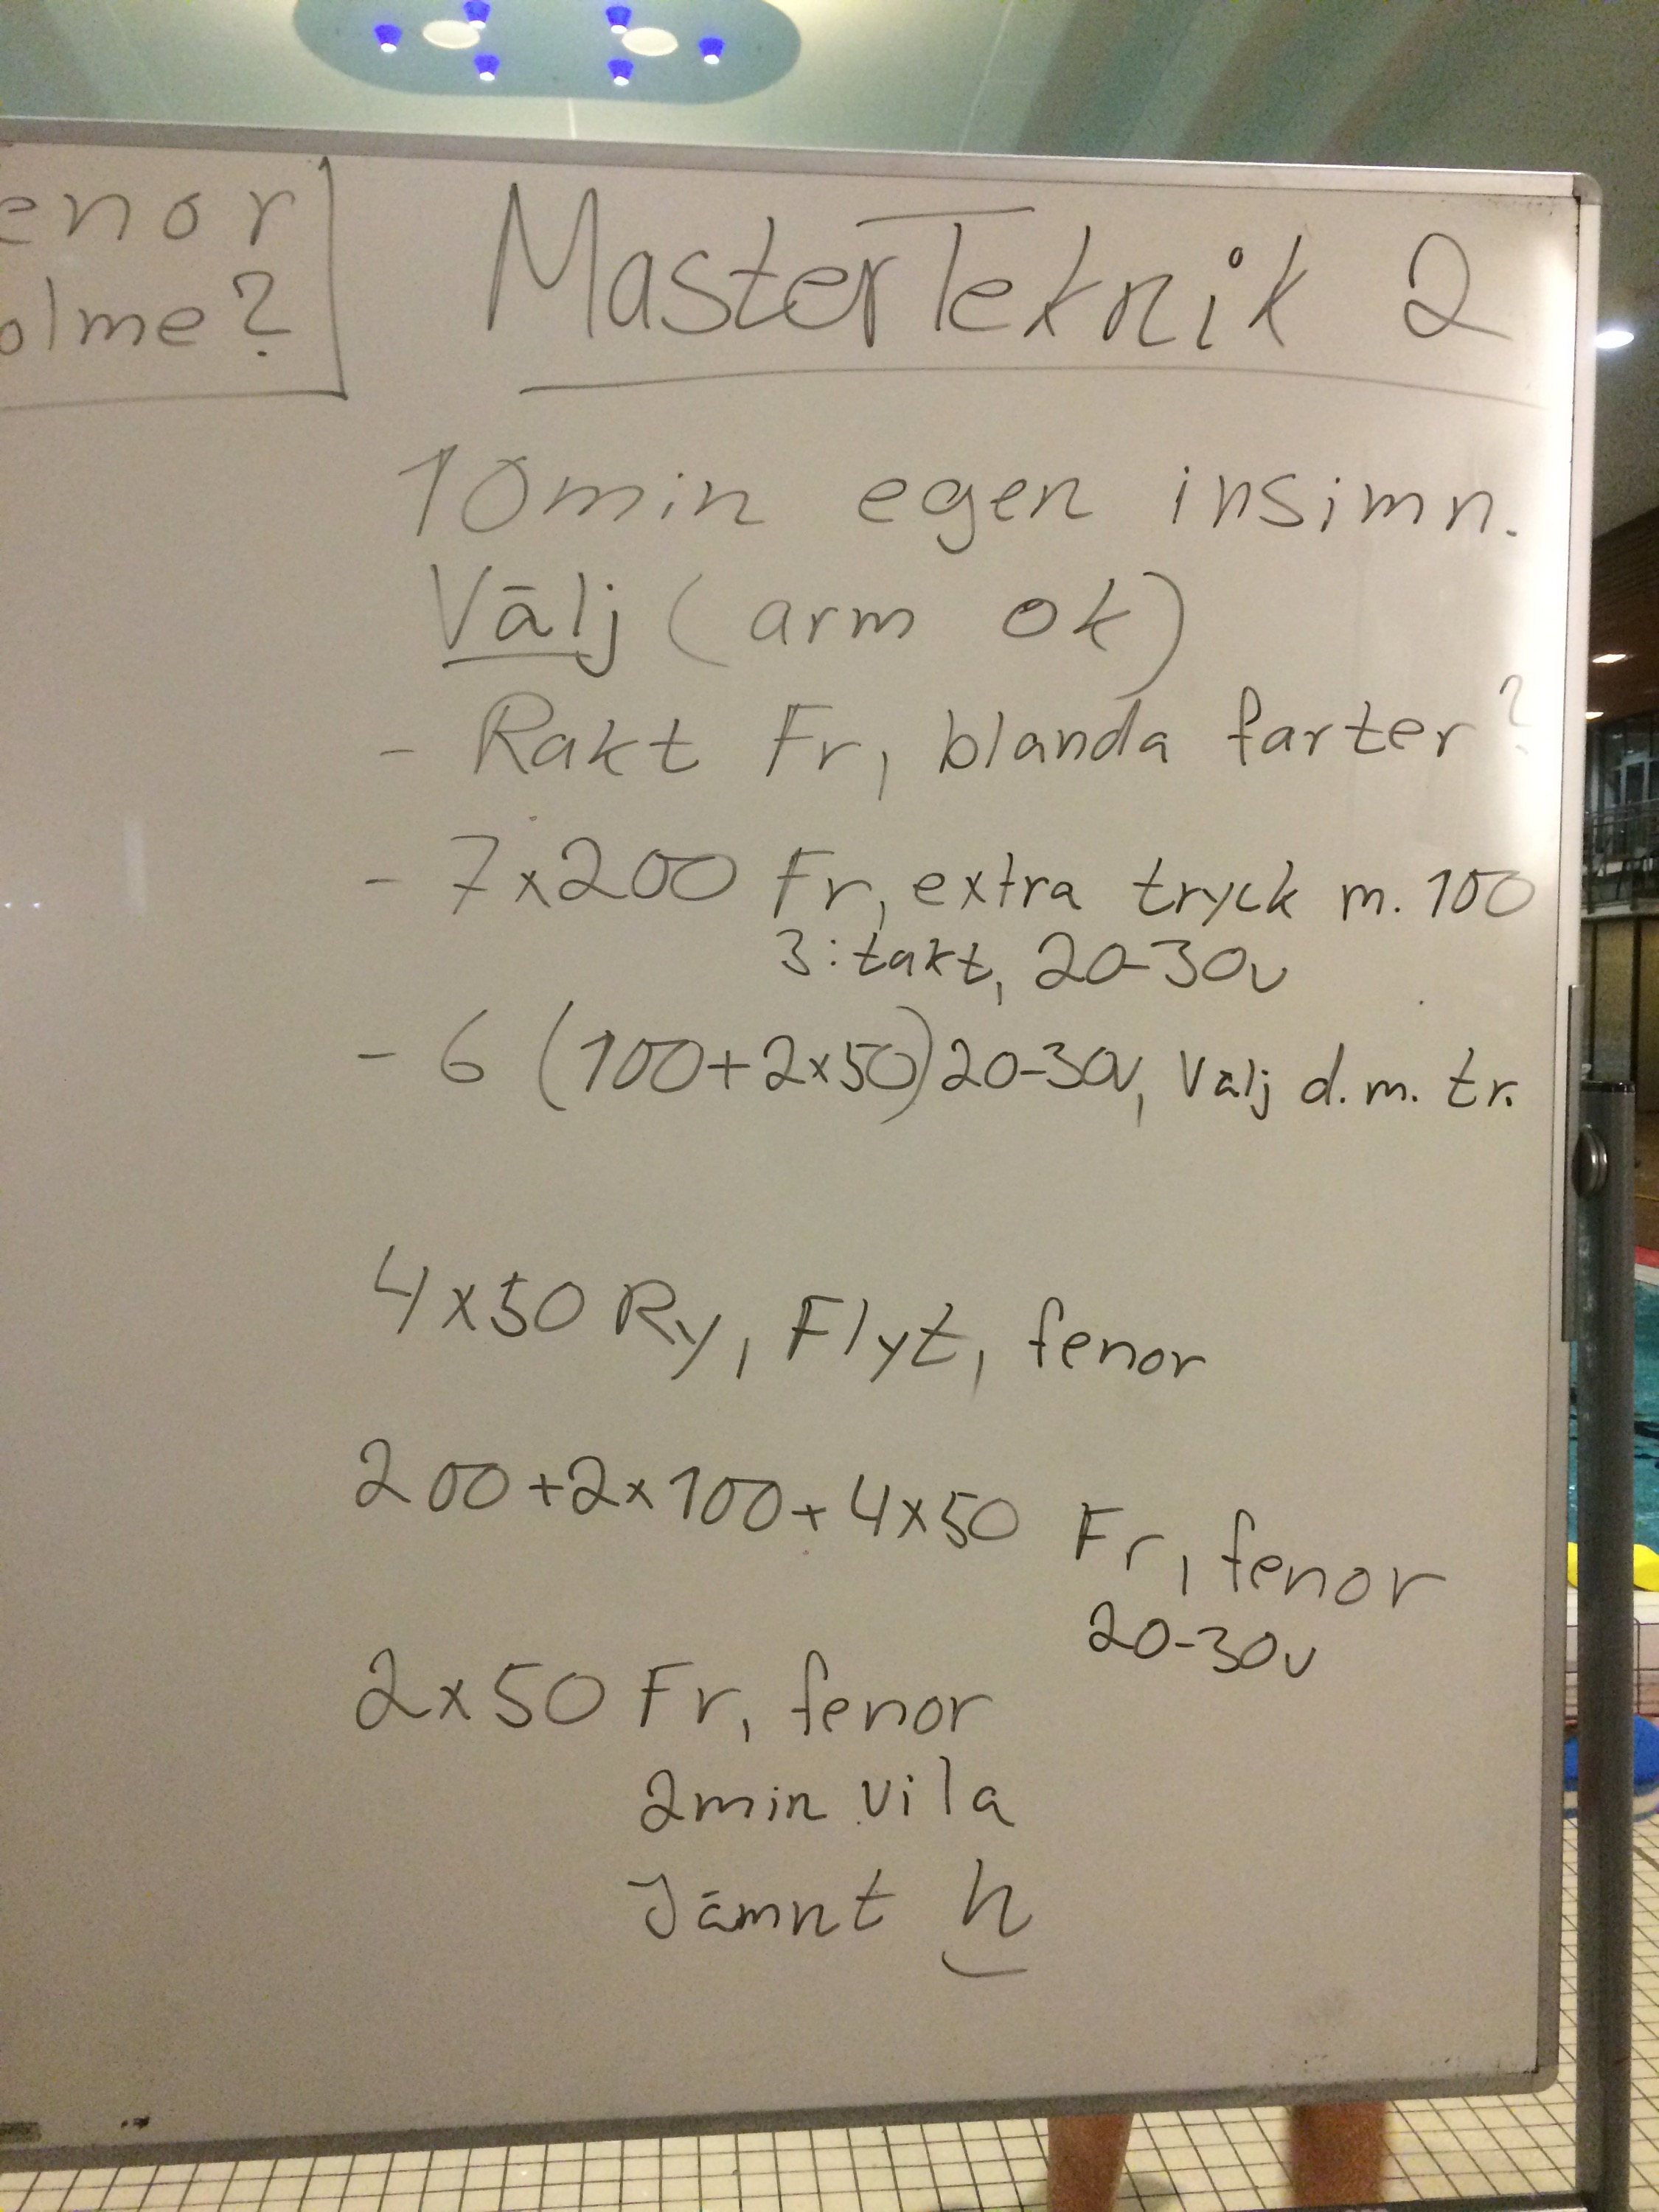 enor
olme?
MasterTeknik 2
10min egen insimn.
Välj (arm ok)
- Rakt Fr, blanda farter?
- 7x200 Fr, extra tryck m. 100
3:takt, 20-30v
- 6 (100+2x50) 20-30v, Välj d.m. tr.
4x50 Ry, Flyt, fenor
200+2x100+4x50 Fr, fenor
20-30v
2x50 Fr, fenor
2min vila
Jämnt h